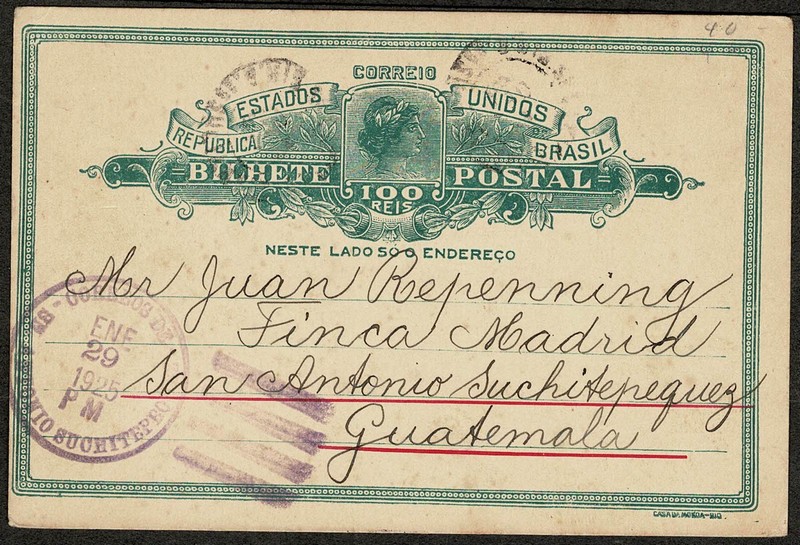 40
CORREIO
ESTADOS UNIDOS
REPUBLICA BRASIL
BILHETE POSTAL
100
REIS
NESTE LADO SÓ O ENDEREÇO
Mr Juan Repenning
Finca Madrid
San Antonio Suchitepequez
Guatemala
CORREOS DE
ENE
29
1925
PM
SUCHITEPEQ
CASA DA MOEDA-RIO